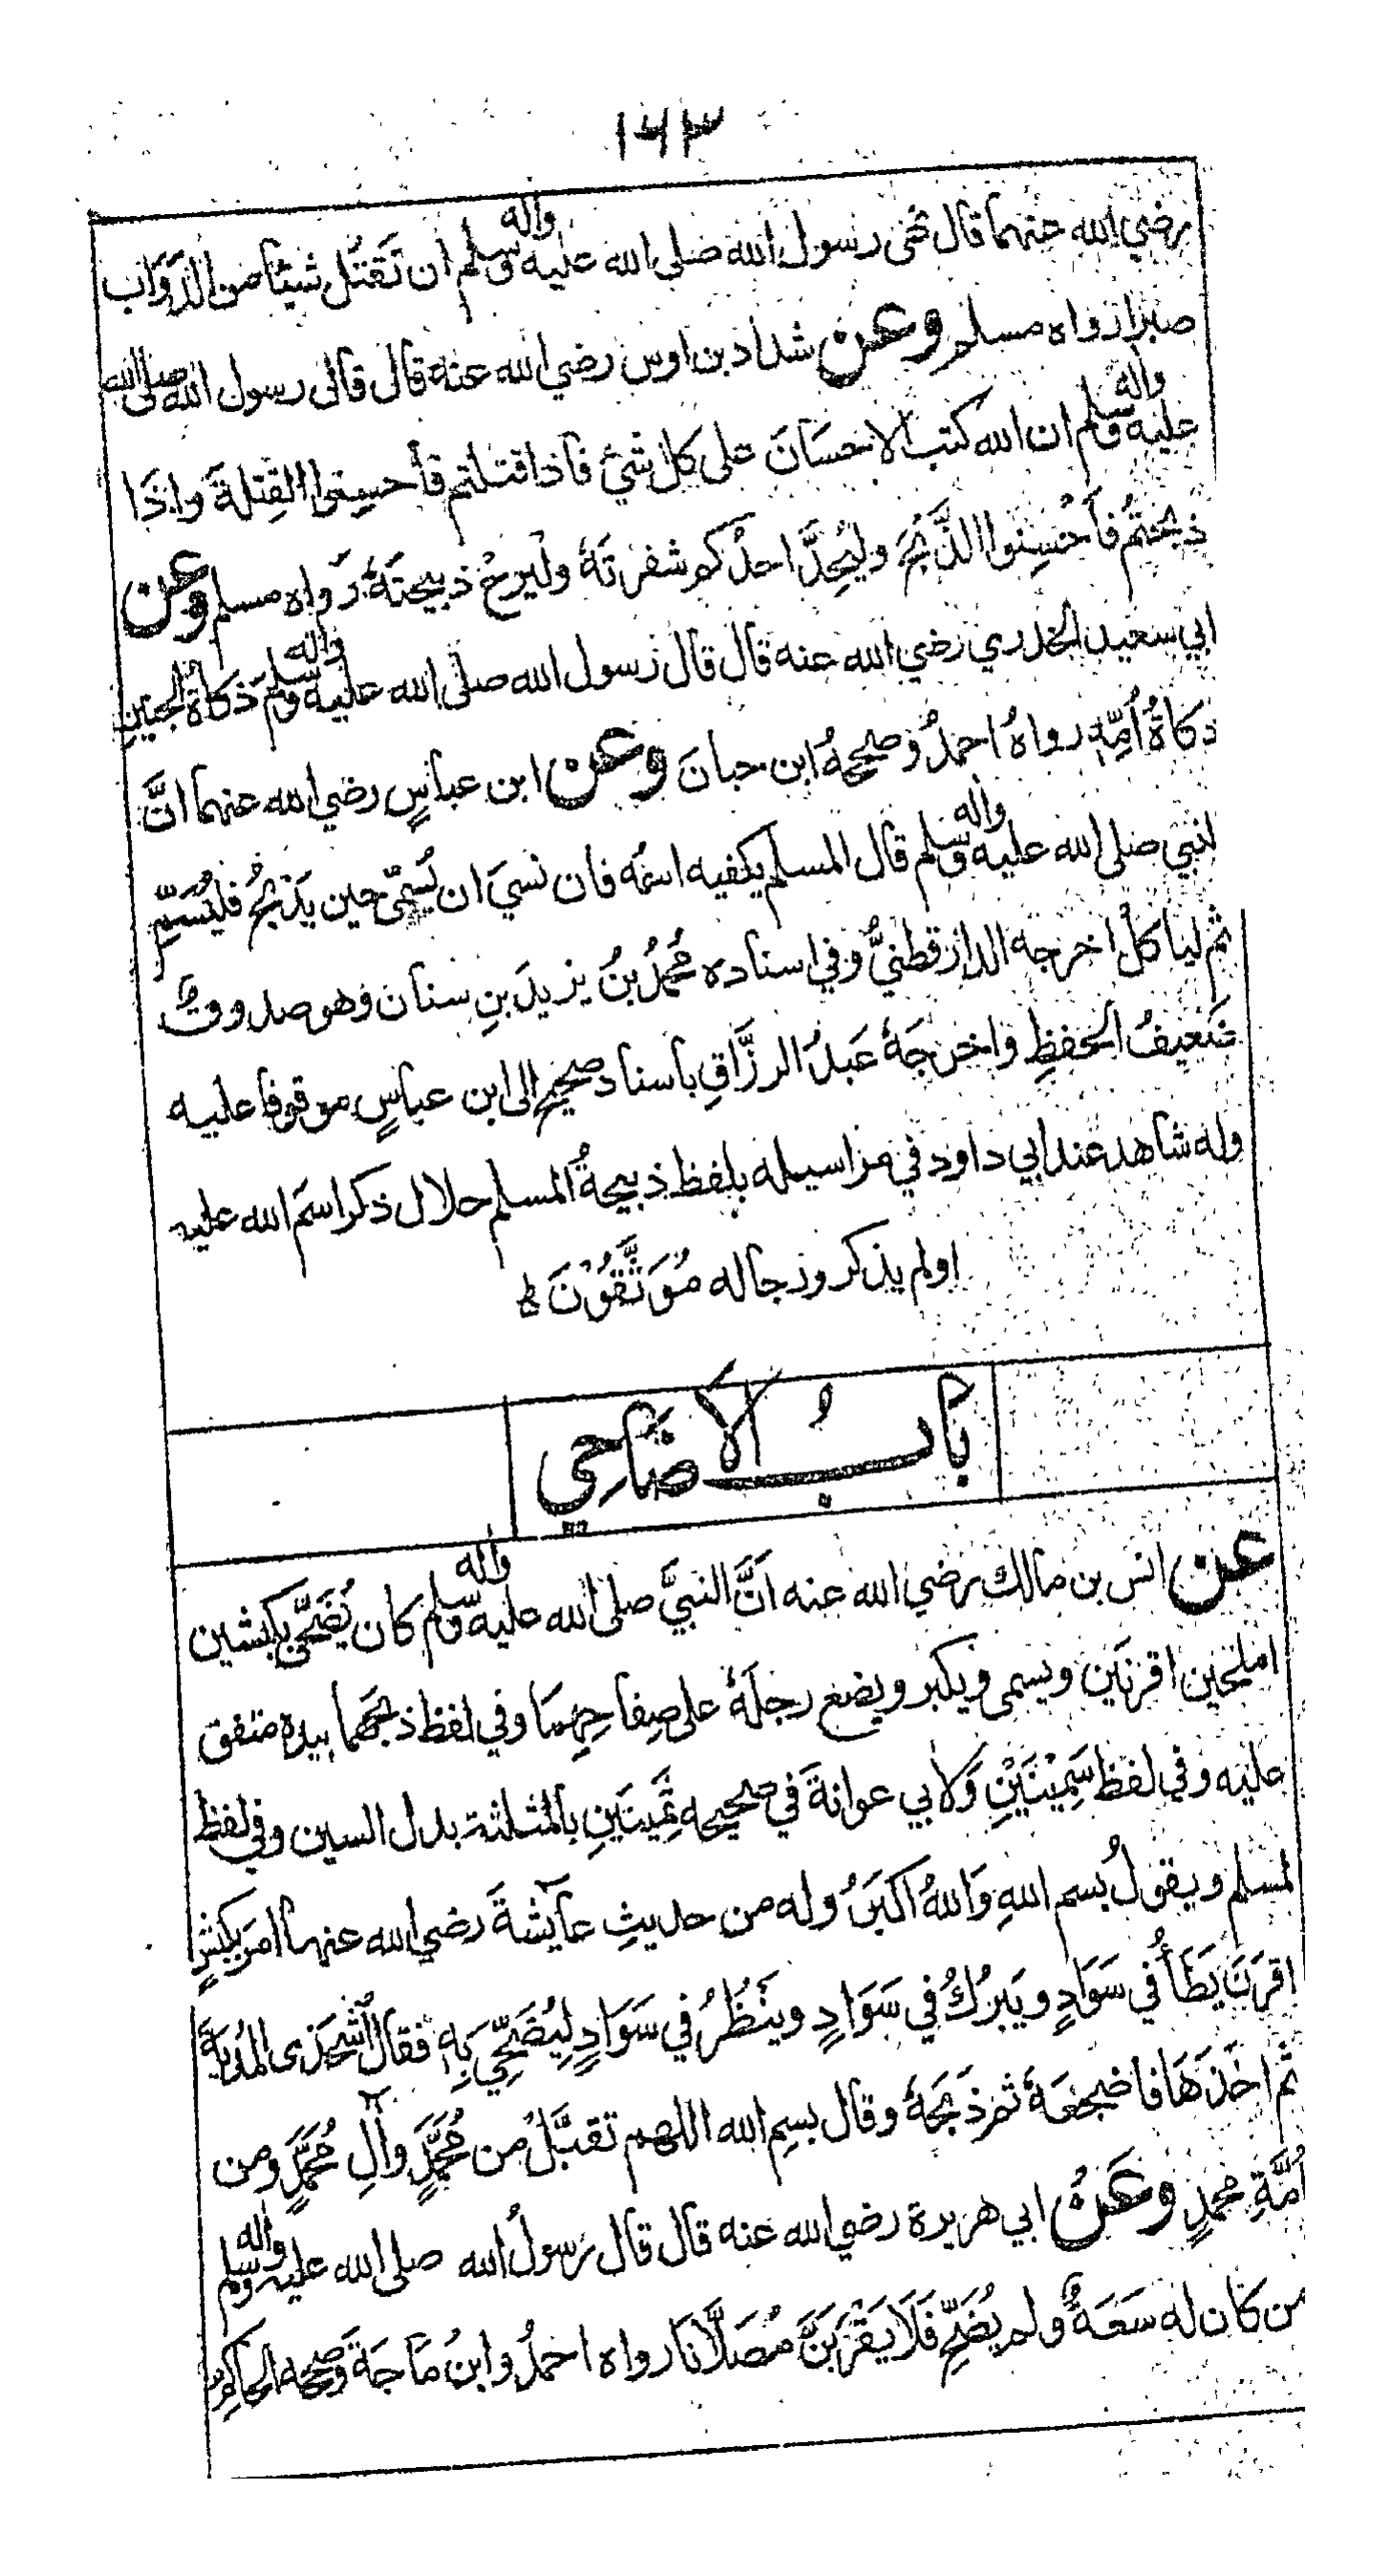 ١٦٣
رضي الله عنهما قال نهى رسول الله صلى الله عليه واله وسلم ان تَقتُل شيئا من الدَوَاب
صبرا رواه مسلم وعن شداد بن اوس رضي الله عنه قال قال رسول الله صلى الله
عليه واله وسلم ان الله كتب الاحسَانَ على كل شئ فاذا قتلتم فأحسِنوا القِتلةَ واذَا
ذبحتُم فَأَحْسِنوا الذَّبْحَ وليُحِدَّ احدُكم شفرتَهُ ولْيرحْ ذبيحتَهُ رواه مسلم وعن
ابي سعيد الخدري رضي الله عنه قال قال رسول الله صلى الله عليه واله وسلم ذكاةُ الجنينِ
ذكاةُ اُمِّهِ رواهُ احمدُ وصححهُ ابن حبانَ وعن ابن عباسٍ رضي الله عنهما انَّ
لنبي صلى الله عليه واله وسلم قال المسلم يكفيه اسمُه فان نسيَ ان يُسمّى حين يَذبحُ فليُسَمِّ
ثم لياكلْ اخرجه الدارقطنيُّ وفي اسناده مُحمدُ بنُ يزيدَ بنِ سنان وهو صدوقٌ
ضَعيفُ الحفظِ واخرجَهُ عَبدُ الرزَّاقِ باسنادٍ صحيحٍ الى ابن عباسٍ موقوفا عليه
وله شاهد عند ابي داود في مراسيله بلفظ ذبيحةُ المسلم حلال ذكر اسمَ الله عليه
اولم يذكر ورجاله مُوَثَّقُوْنَ ط
بابُ الاضَاحِي
عن انس بن مالك رضي الله عنه اَنَّ النبيَّ صلى الله عليه واله وسلم كان يُضَحّي بكبشين
املحين اقرنَين ويسمى ويكبر ويضع رجلَهُ على صِفاحِهِمَا وفي لفظ ذبحَهما بيده متفق
عليه وفي لفظ سَمِيْنَيْنِ وَلابي عوانةَ في صحيحه ثَمِينَينِ بالمثلثة بدل السين وفي لفظ
لمسلم ويقولُ بسم اللهِ وَاللهُ اكبَرُ وله من حديثِ عآئشةَ رضي الله عنها امر بكبشٍ
اقرَنَ يَطَأُ في سَوَادٍ ويَبرُكُ في سَوَادٍ وينْظُرُ في سَوَادٍ لِيُضَحِّي بِه فقال اشْحَذى المُديةَ
ثم اخَذَهَا فاضجعَهُ ثم ذبحَهُ وقال بسمِ الله اللهم تقبَّلْ من مُحَمَّدٍ وآلِ مُحَمَّدٍ ومن
اُمَّةِ محمدٍ وعَنْ ابي هريرة رضي الله عنه قال قال رسولُ الله صلى الله عليه واله وسلم
من كان له سَعَةٌ ولم يُضَحِّ فَلَا يَقْرَبَنَّ مُصَلَّانَا رواه احمدُ وابنُ مَاجَةَ وصححه الحاكم